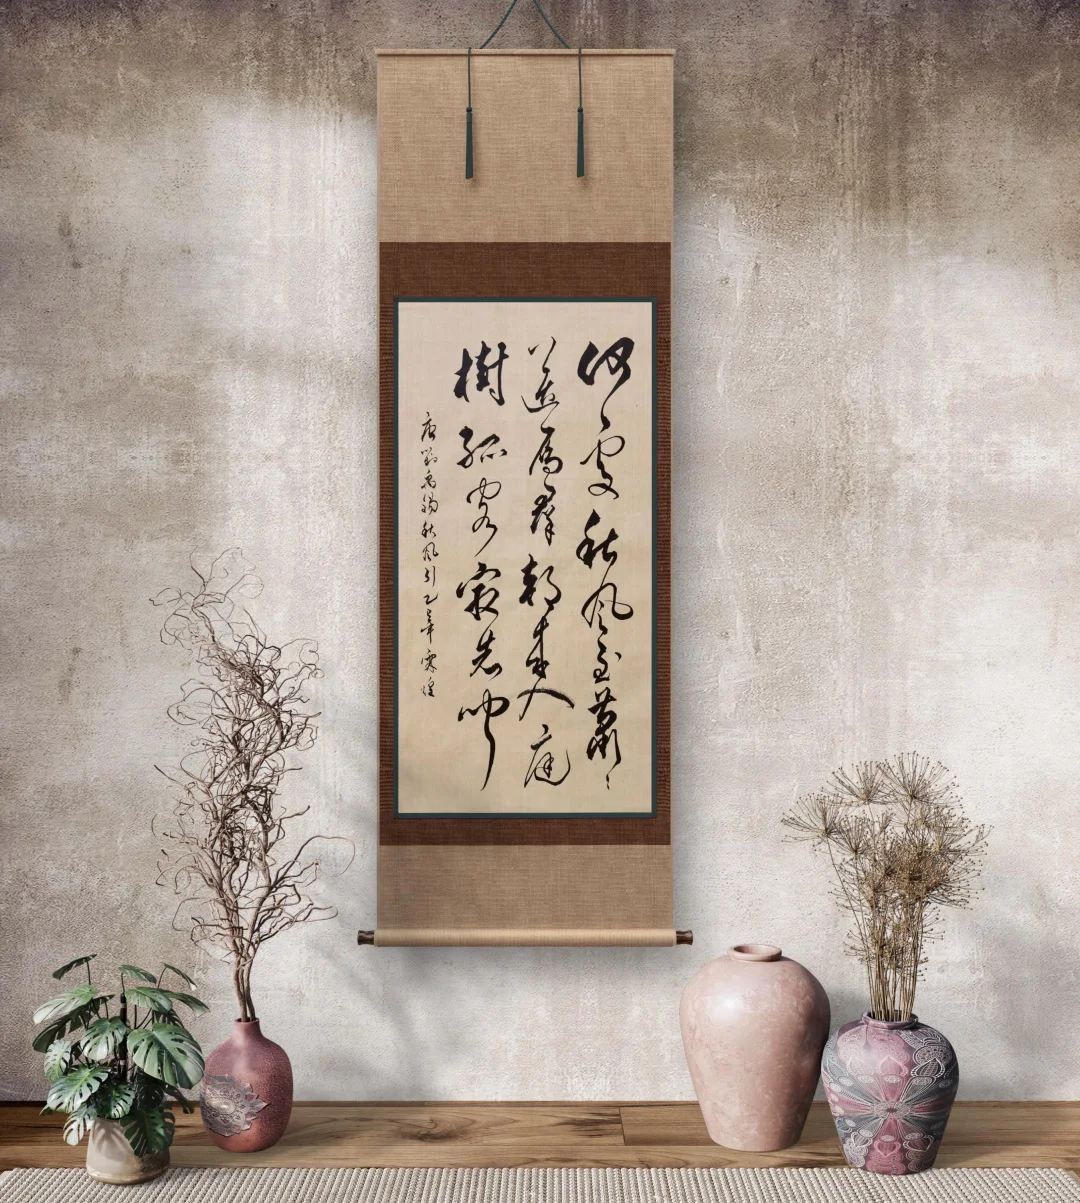 何處秋風至蕭々
送雁群朝來入庭
樹孤客寂先聞
唐劉禹錫秋風引乙年霖煌